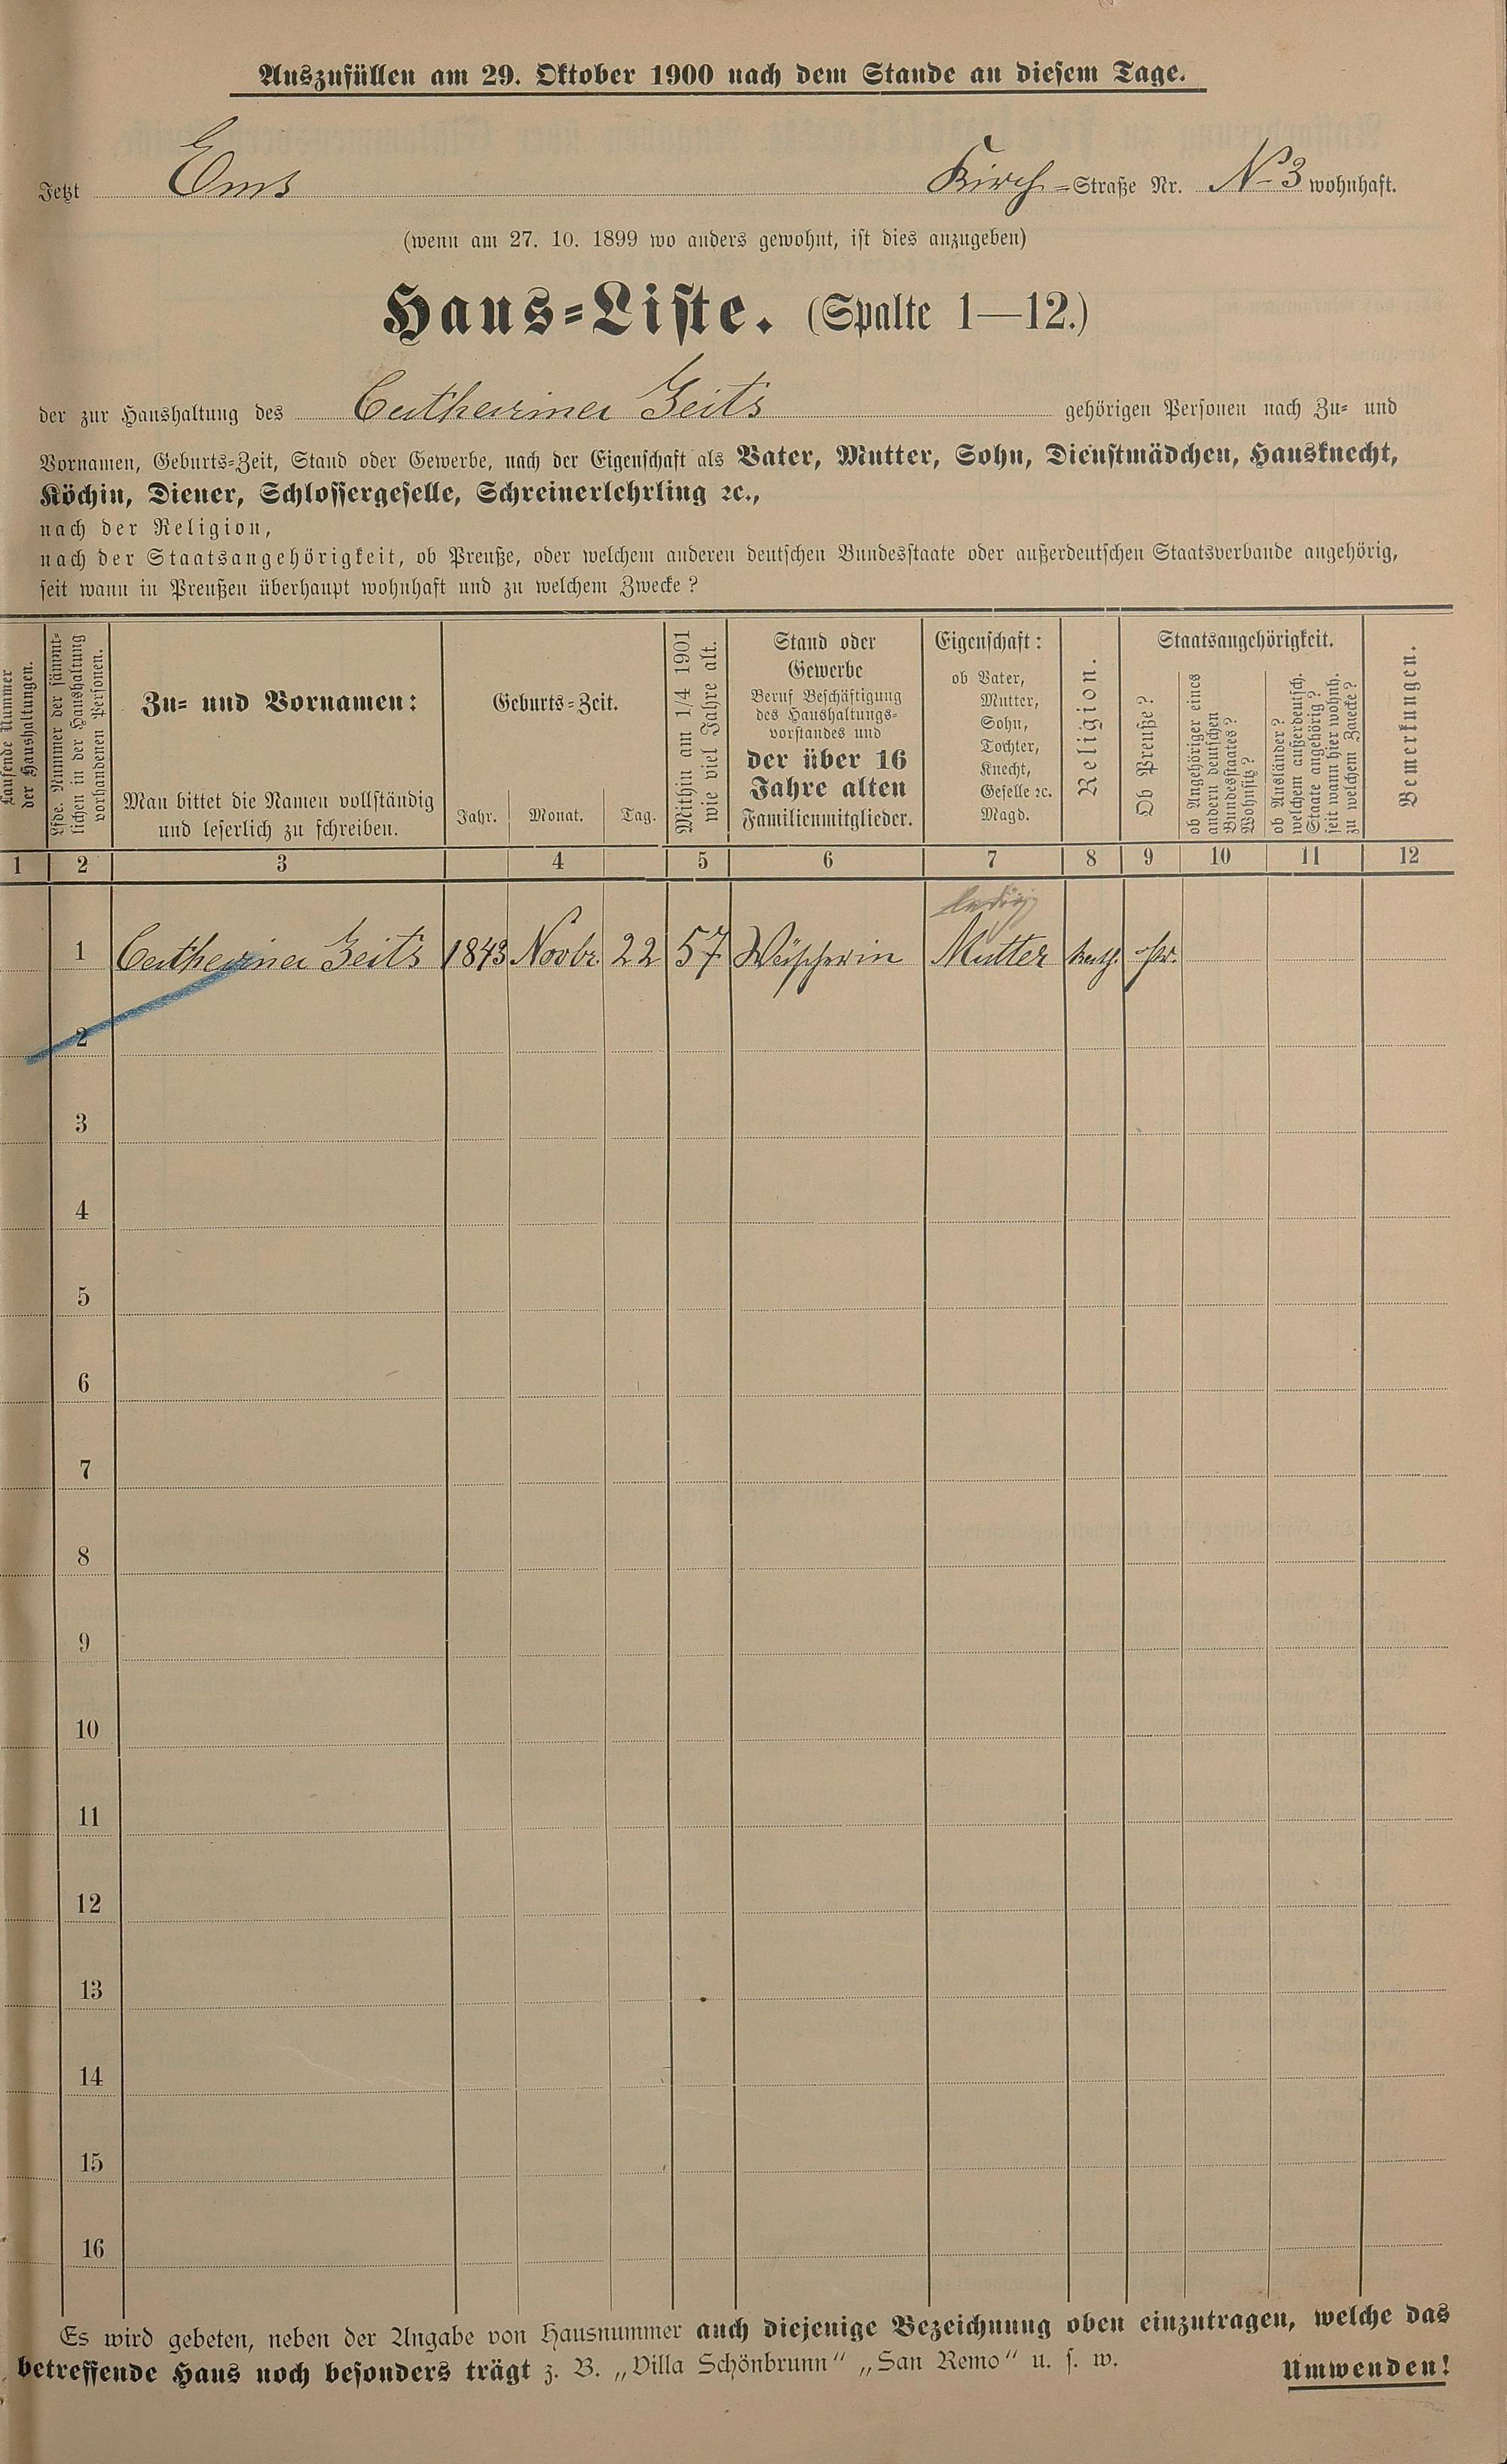 Auszufüllen am 29. Oktober 1900 nach dem Stande an diesem Tage.
Jetzt Ems Kirch-Straße Nr. No 3 wohnhaft.
(wenn am 27. 10. 1899 wo anders gewohnt, ist dies anzugeben)
Haus-Liste. (Spalte 1—12.)
der zur Haushaltung des Catharina Zeits gehörigen Personen nach Zu- und
Vornamen, Geburts-Zeit, Stand oder Gewerbe, nach der Eigenschaft als Vater, Mutter, Sohn, Dienstmädchen, Hausknecht,
Köchin, Diener, Schlossergeselle, Schreinerlehrling ꝛc.,
nach der Religion,
nach der Staatsangehörigkeit, ob Preuße, oder welchem anderen deutschen Bundesstaate oder außerdeutschen Staatsverbande angehörig,
seit wann in Preußen überhaupt wohnhaft und zu welchem Zwecke?
Laufende Nummer
der Haushaltungen.
Lfde. Nummer der sämmt-
lichen in der Haushaltung
vorhandenen Personen.
Zu- und Vornamen:
Man bittet die Namen vollständig
und leserlich zu schreiben.
Geburts-Zeit.
Jahr. Monat. Tag.
Mithin am 1/4 1901
wie viel Jahre alt.
Stand oder
Gewerbe
Beruf Beschäftigung
des Haushaltungs-
vorstandes und
der über 16
Jahre alten
Familienmitglieder.
Eigenschaft:
ob Vater,
Mutter,
Sohn,
Tochter,
Knecht,
Geselle ꝛc.
Magd.
Religion.
Staatsangehörigkeit.
Ob Preuße?
ob Angehöriger eines
andern deutschen
Bundesstaates?
Wohnsitz?
ob Ausländer?
welchem außerdeutsch.
Staate angehörig?
seit wann hier wohnh.
zu welchem Zwecke?
Bemerkungen.
1 2 3 4 5 6 7 8 9 10 11 12
ledig
1 Catharina Zeits 1843 Novbr. 22 57 Wäscherin Mutter kath. pr.
2
3
4
5
6
7
8
9
10
11
12
13
14
15
16
Es wird gebeten, neben der Angabe von Hausnummer auch diejenige Bezeichnung oben einzutragen, welche das
betreffende Haus noch besonders trägt z. B. „Villa Schönbrunn“ „San Remo“ u. s. w. Umwenden!